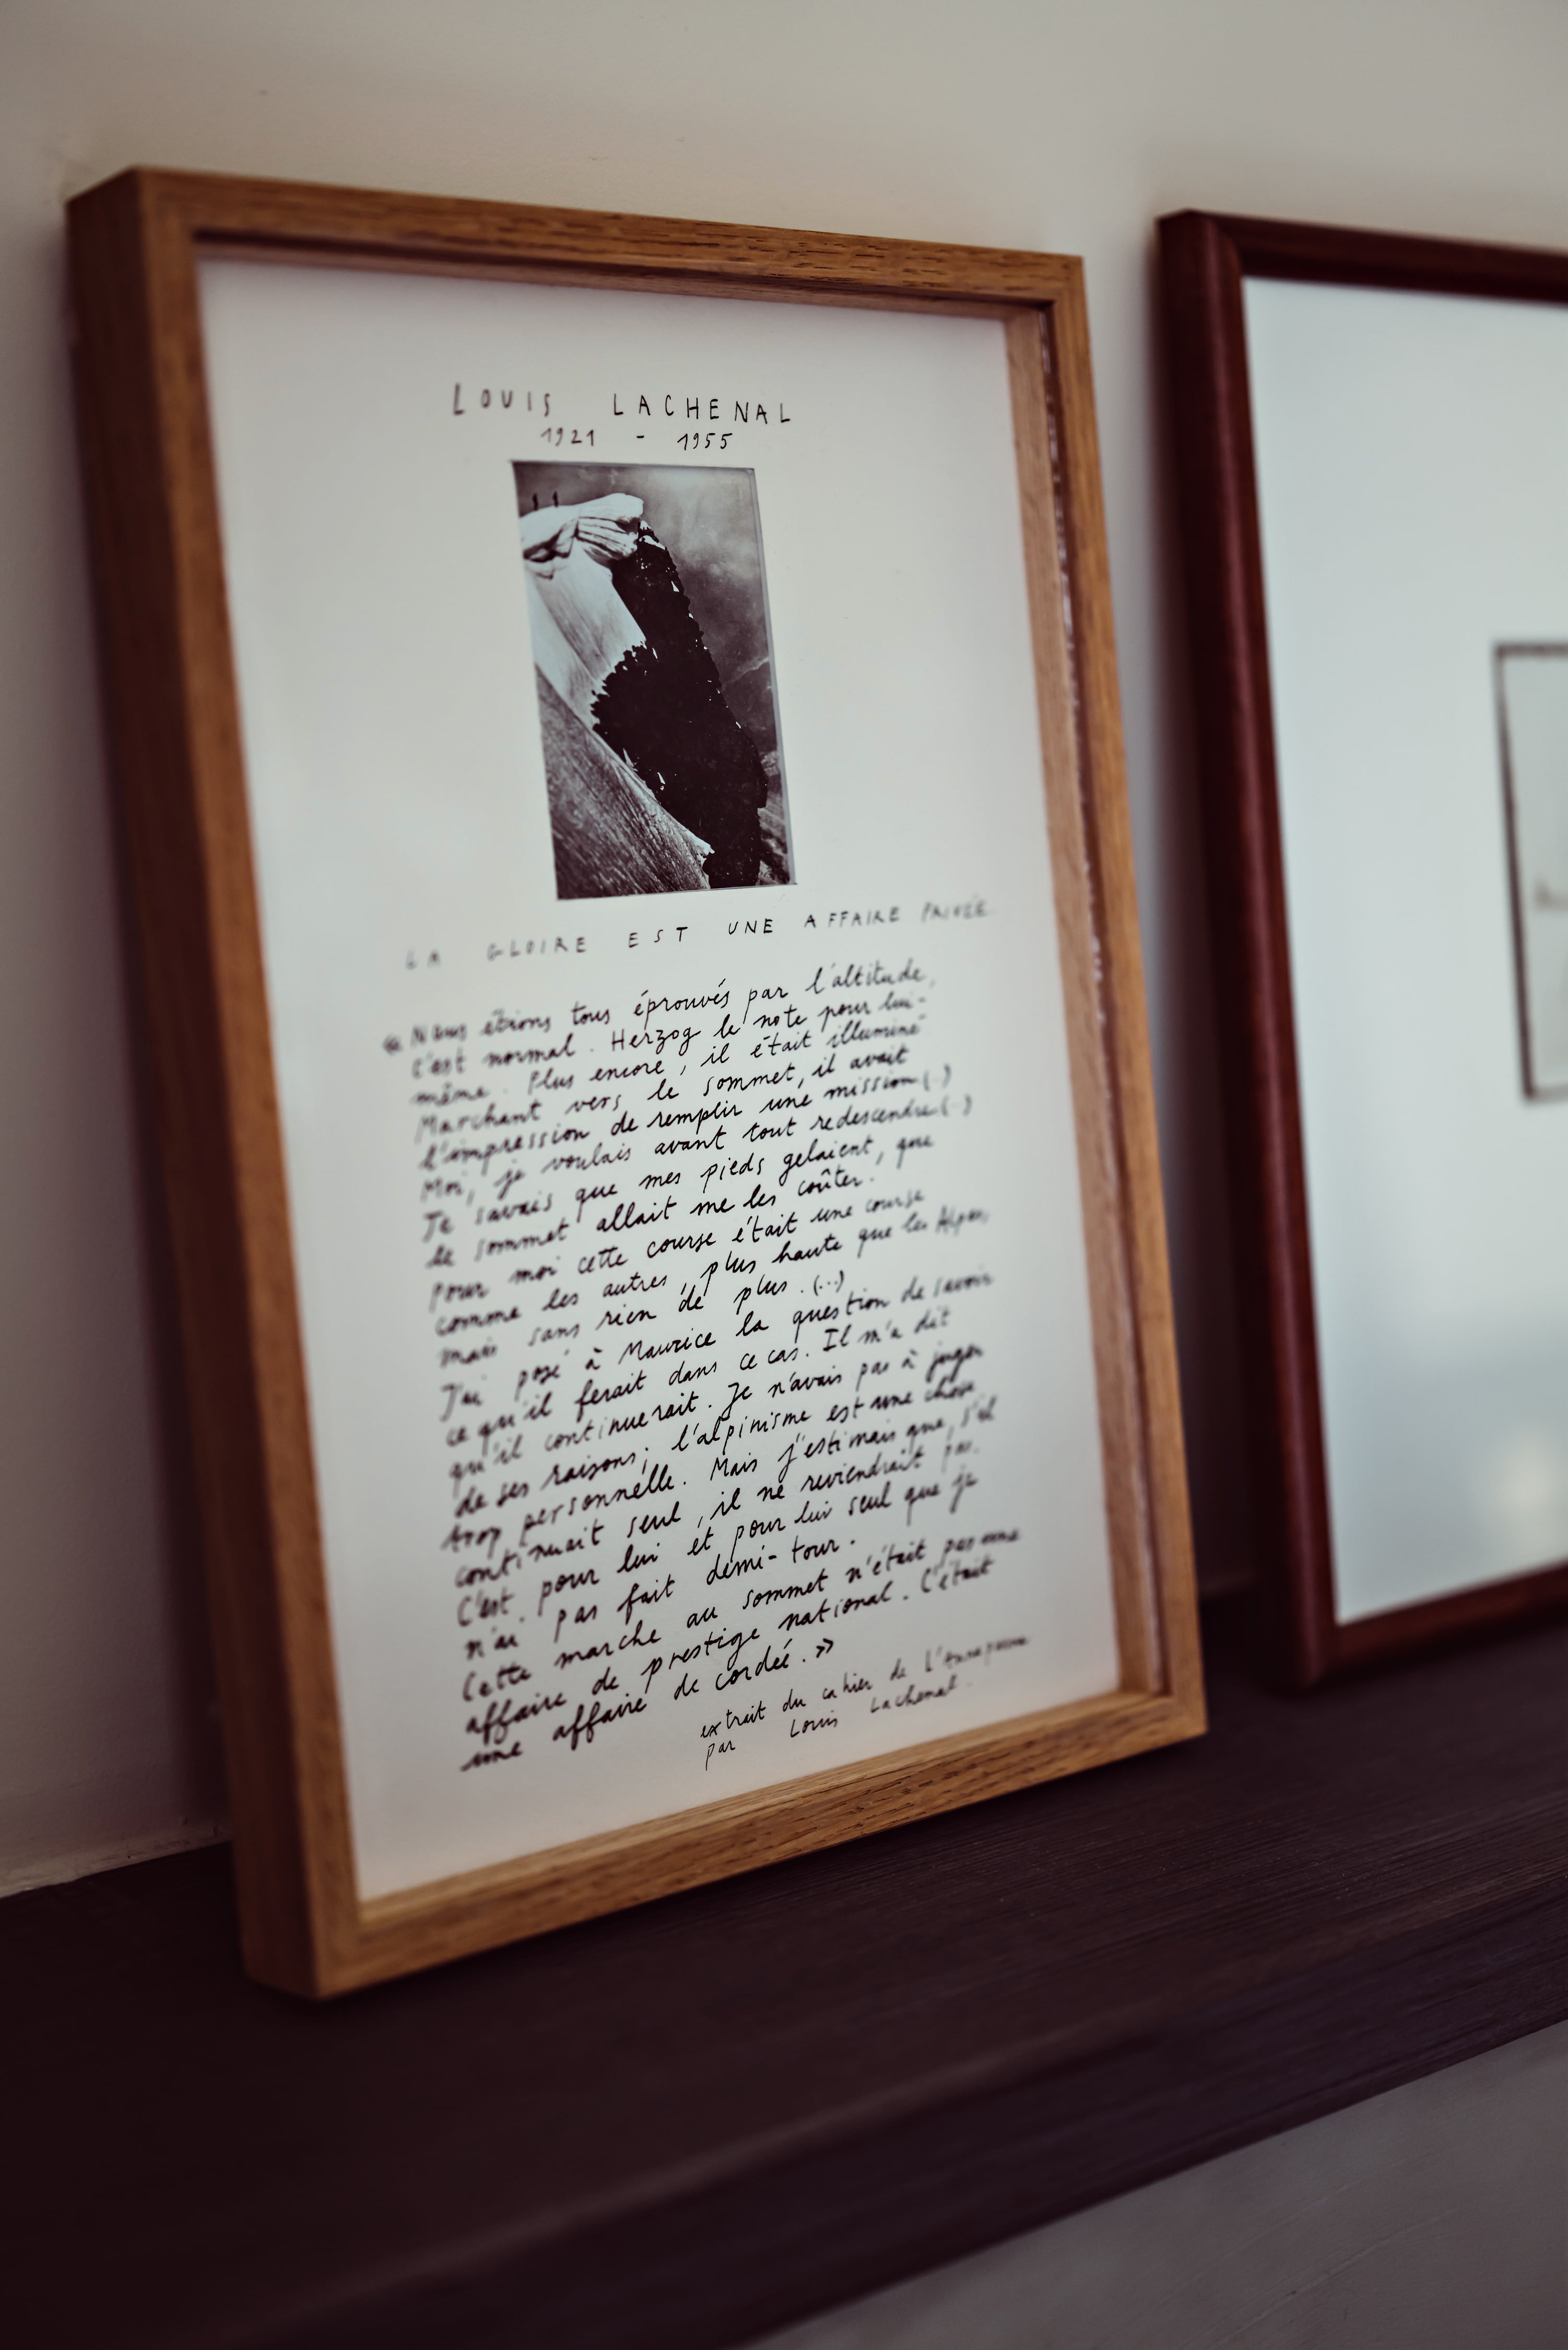 LOUIS LACHENAL
1921 - 1955
LA GLOIRE EST UNE AFFAIRE PRIVÉE
« Nous étions tous éprouvés par l'altitude,
c'est normal. Herzog le note pour lui-
même. Plus encore, il était illuminé
Marchant vers le sommet, il avait
l'impression de remplir une mission (..)
Moi, je voulais avant tout redescendre (..)
Je savais que mes pieds gelaient, que
le sommet allait me les coûter.
Pour moi cette course était une course
comme les autres, plus haute que les Alpes,
mais sans rien de plus. (...)
J'ai posé à Maurice la question de savoir
ce qu'il ferait dans ce cas. Il m'a dit
qu'il continuerait. Je n'avais pas à juger
de ses raisons; l'alpinisme est une chose
trop personnelle. Mais j'estimais que, s'il
continuait seul, il ne reviendrait pas.
C'est pour lui et pour lui seul que je
n'ai pas fait demi-tour.
Cette marche au sommet n'était pas une
affaire de prestige national. C'était
une affaire de cordée. »
extrait du cahier de l'Annapurna
par Louis Lachenal.